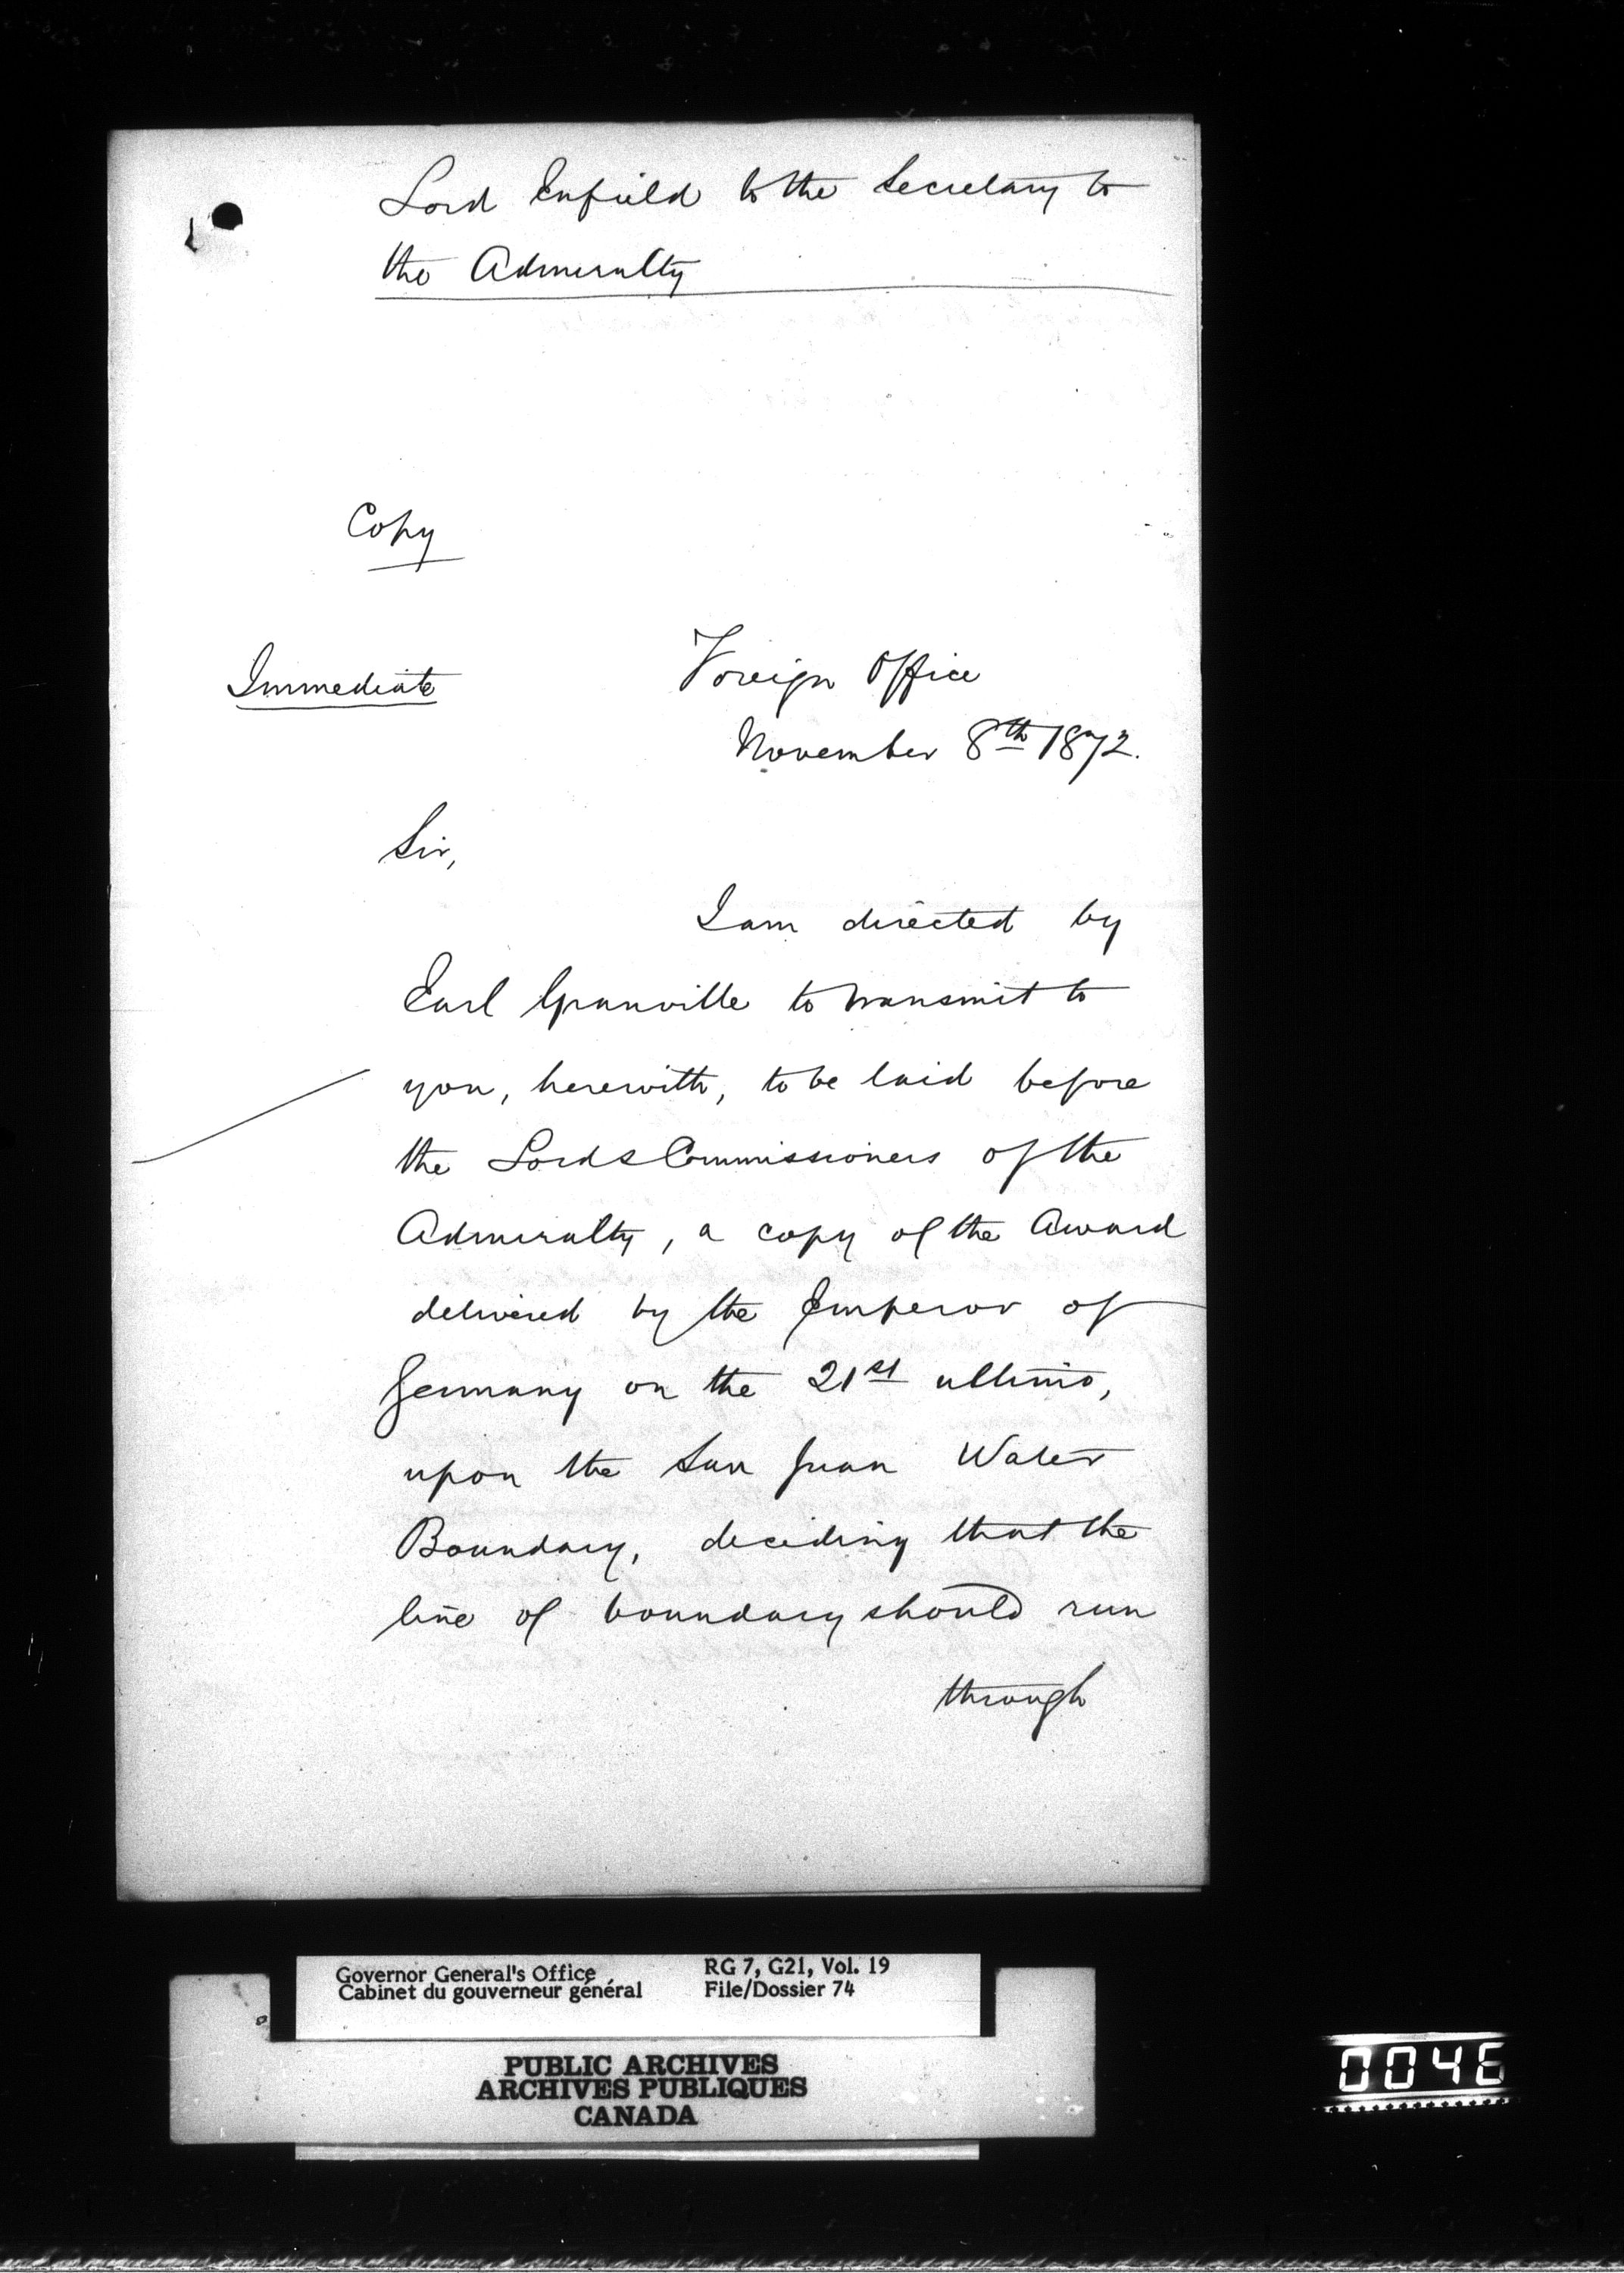 Lord Enfield to the Secretary to
the Admiralty
Copy
Immediate
Foreign Office
November 8th 1872.
Sir,
I am directed by
Earl Granville to transmit to
you, herewith, to be laid before
the Lords Commissioners of the
Admiralty, a copy of the Award
delivered by the Emperor of
Germany on the 21st ultimo,
upon the San Juan Water
Boundary, deciding that the
line of boundary should run
through
Governor General's Office
Cabinet du gouverneur général
RG 7, G21, Vol. 19
File/Dossier 74
PUBLIC ARCHIVES
ARCHIVES PUBLIQUES
CANADA